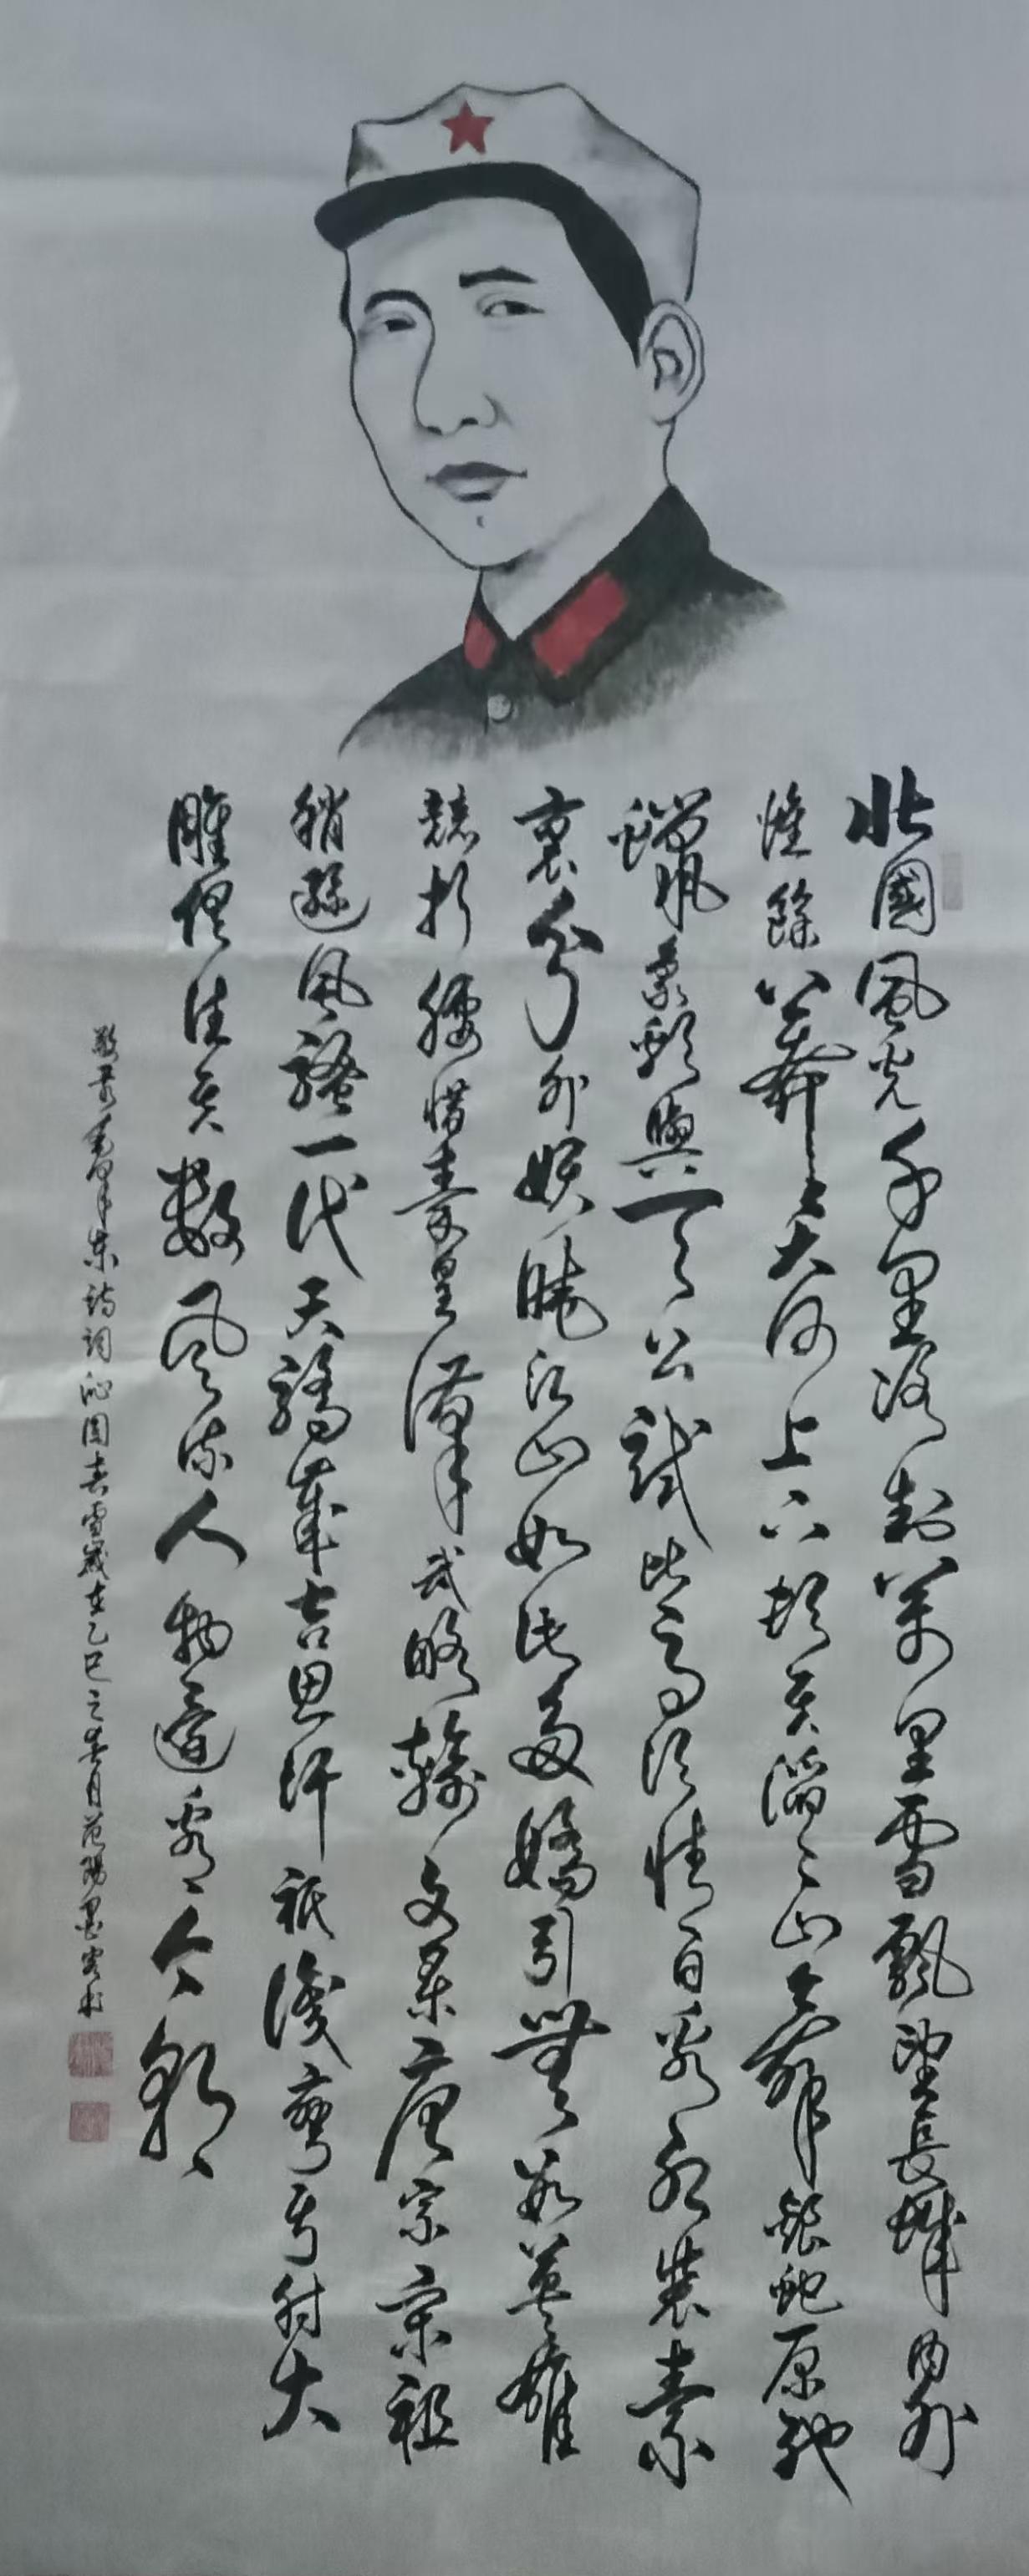 北國風光千里冰封萬里雪飄望長城内外
惟餘莽莽大河上下頓失滔滔山舞銀蛇原馳
蠟象欲與天公試比高須晴日看紅裝素
裹分外妖嬈江山如此多嬌引無數英雄
競折腰惜秦皇漢武略輸文采唐宗宋祖
稍遜風騷一代天驕成吉思汗祇識彎弓射大
雕俱往矣數風流人物還看今朝
敬录毛澤東詩詞沁园春雪歲在乙巳之春月范陽墨客书